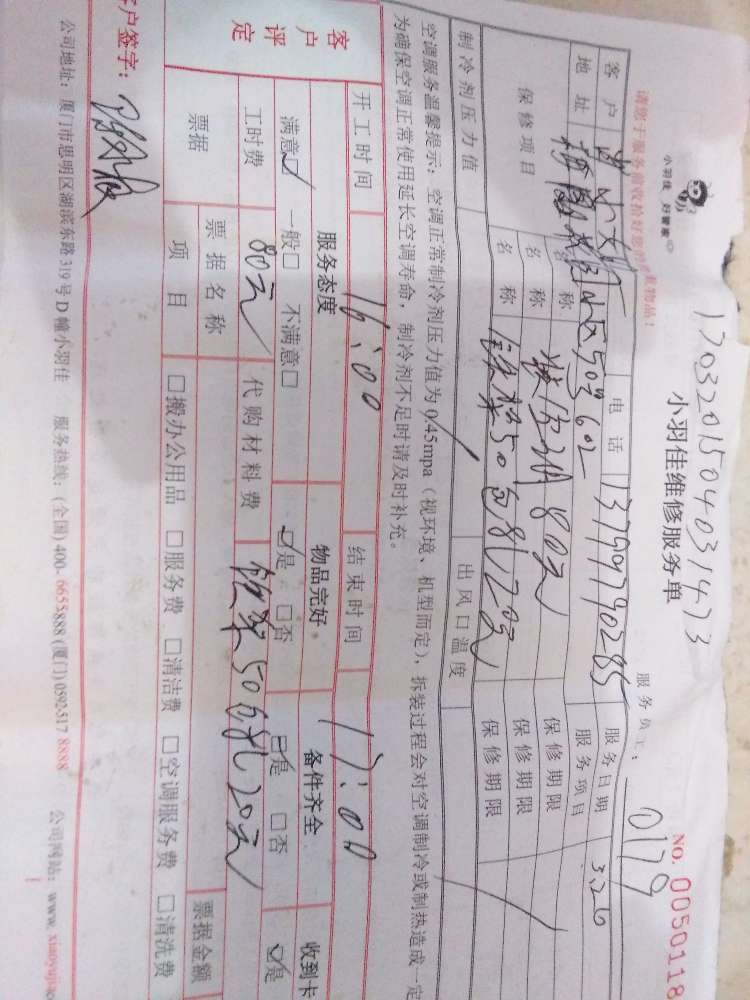 1703201504031473
小羽佳 好管家
小羽佳维修服务单
NO. 0050118
请您于服务前收拾好您的 物品！
服务员工： 0179
客户 电话 13799790285 服务日期 3.26
地址 503 602 服务项目
保修项目 名称 80元 保修期限
名称 50 20元 保修期限
名称 保修期限
制冷剂压力值 出风口温度
空调服务温馨提示：空调正常制冷剂压力值为0/45mpa（视环境、机型而定），拆装过程会对空调制冷或制热造成一定
为确保空调正常使用延长空调寿命，制冷剂不足时请及时补充。
开工时间 16:00 结束时间 17:00
客户评定 服务态度 物品完好 备件齐全 收到卡
满意☑ 一般□ 不满意□ ☑是 □否 ☑是 □否 ☑是
工时费 80元 代购材料费 50 20元
票据 票据名称 票据金额
项目 □搬办公用品 □服务费 □清洁费 □空调服务费 □清洗费
客户签字：
公司地址：厦门市思明区湖滨东路319号D幢小羽佳 服务热线：(全国)400-6655888 (厦门)0592-5178888 公司网站：www.xiaoyuj